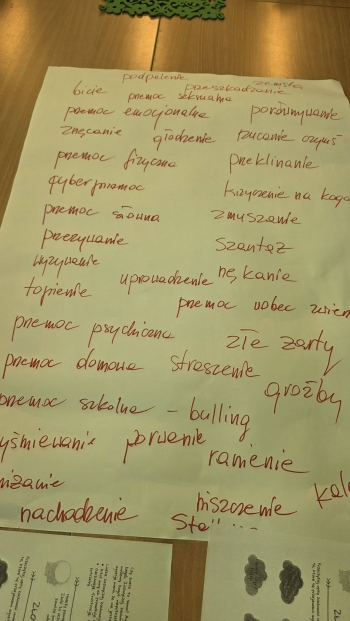 podpalenie zemsta
bicie przeszkadzanie
przemoc seksualna
przemoc emocjonalna porównywanie
znęcanie głodzenie rzucanie czymś
przemoc fizyczna przeklinanie
cyberprzemoc krzyczenie na kogo
przemoc słowna zmuszanie
przezywanie szantaż
wyzywanie nękanie
topienie uprowadzenie
przemoc wobec zwierz
przemoc psychiczna złe żarty
przemoc domowa straszenie
groźby
przemoc szkolna – bulling
yśmiewanie porwanie
ranienie
niżanie niszczenie
nachodzenie